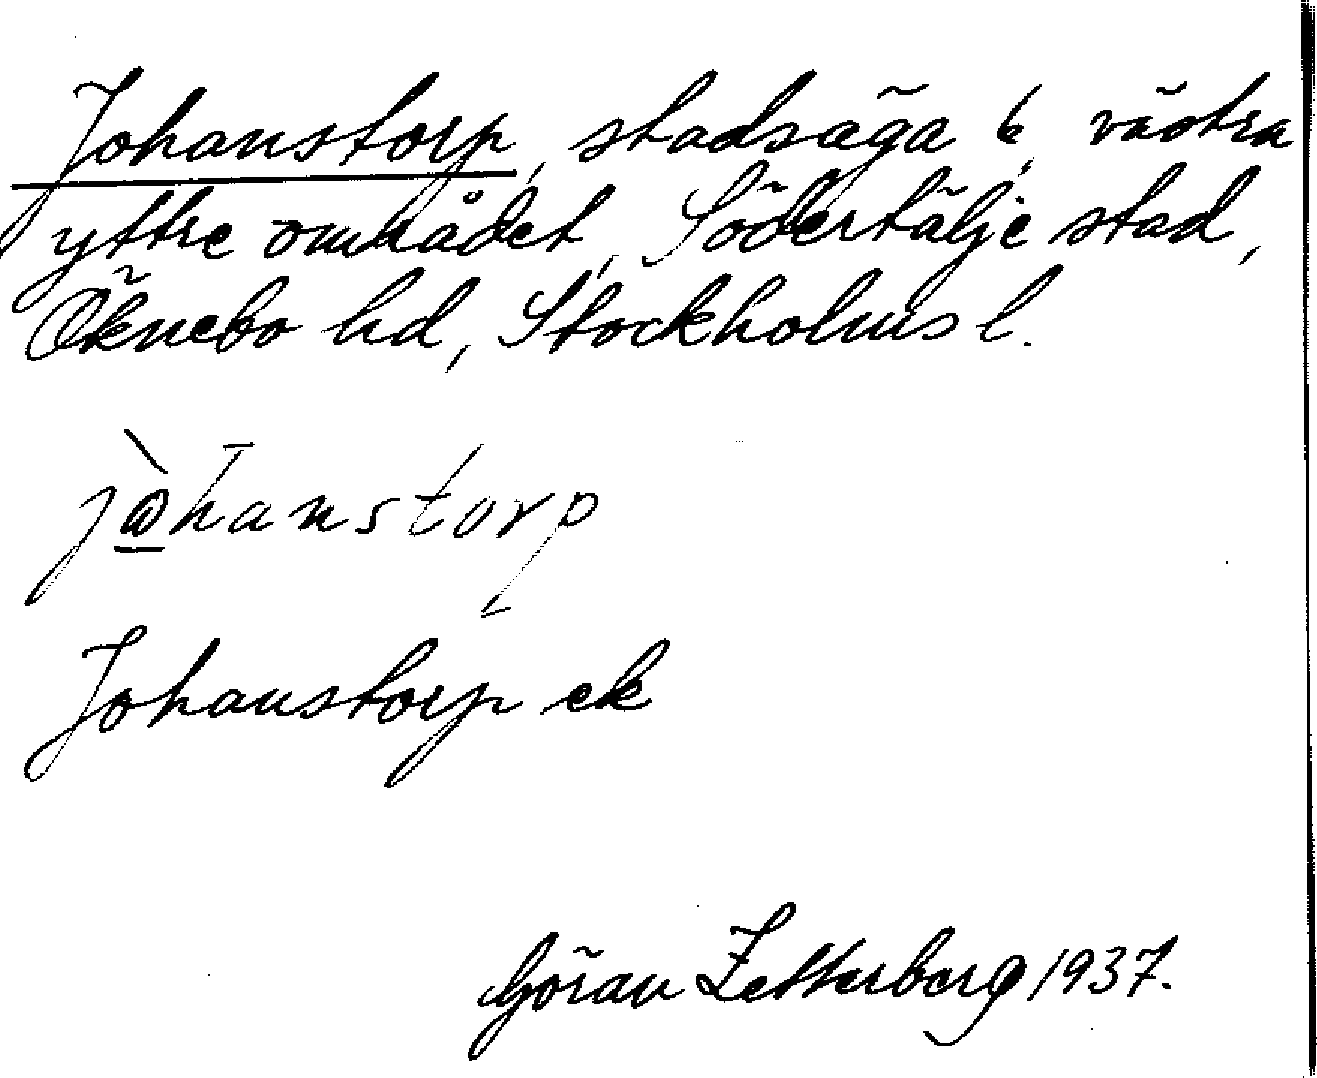 Johanstorp, stadsäga 6, västra
yttre området, Södertälje stad,
Öknebo hd, Stockholms l.
jòhanstorp
Johanstorp ek
Göran Zetterberg 1937.